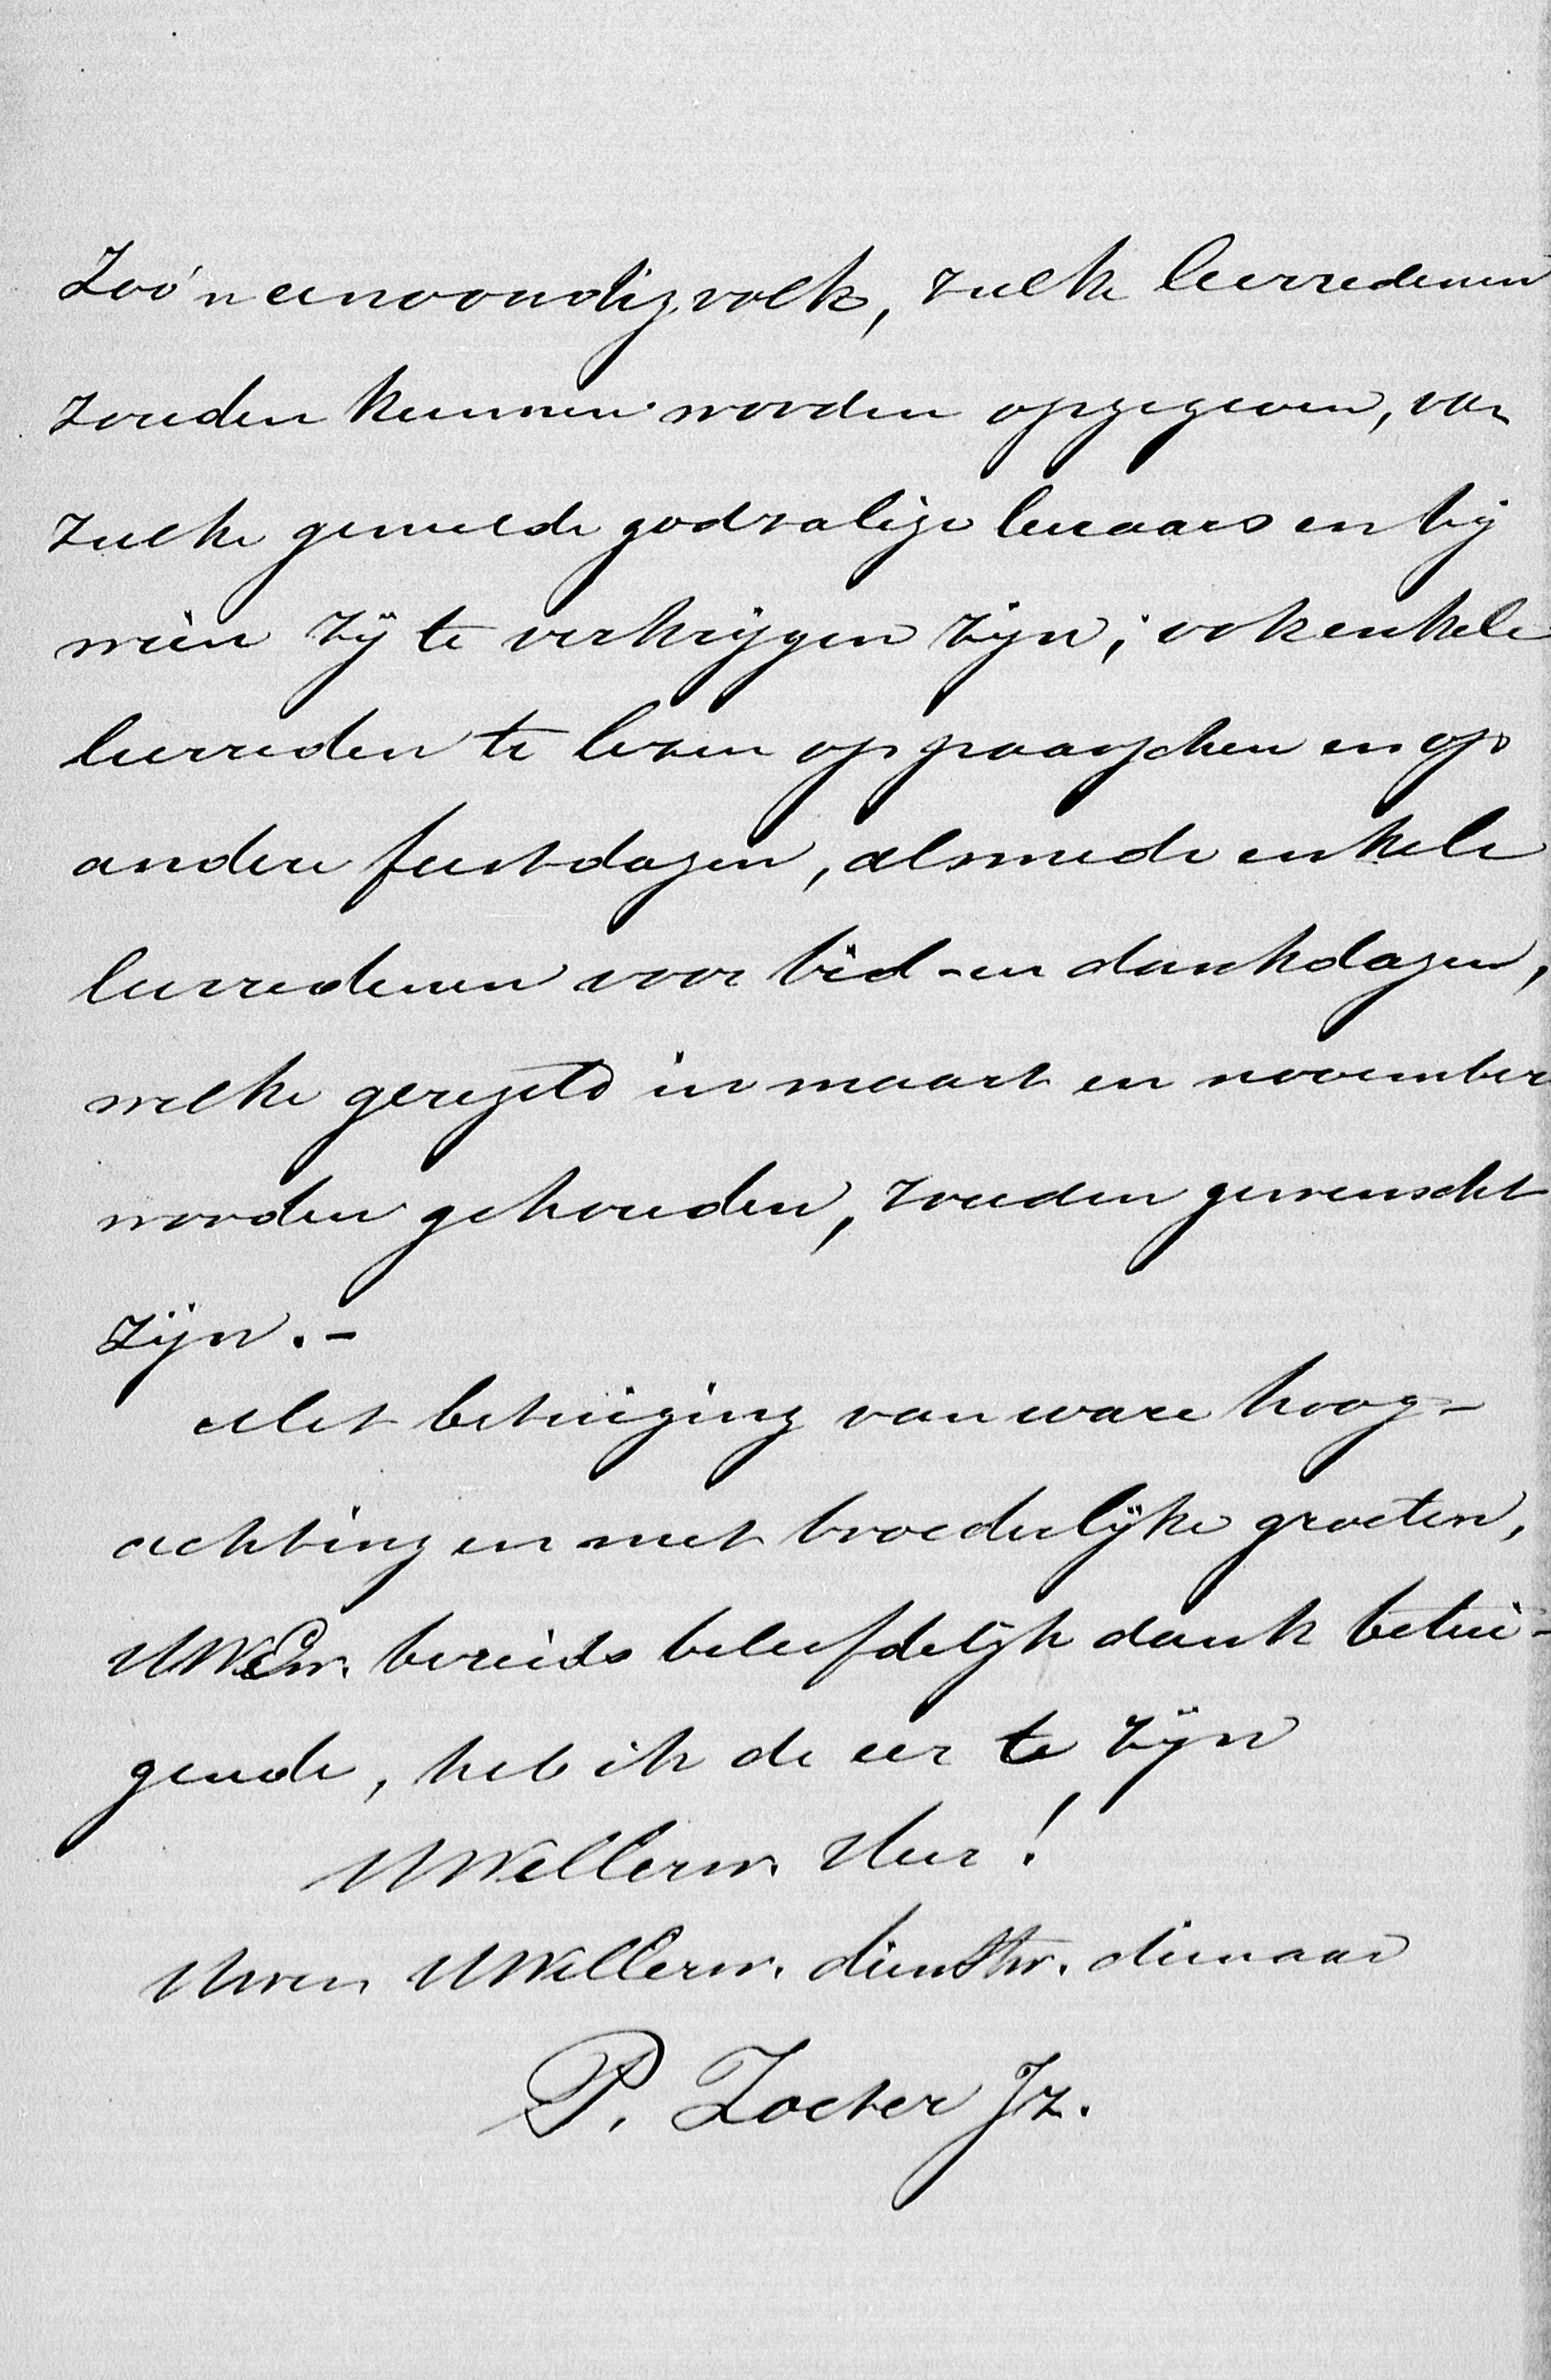 Zoo'n eenvoudig volk, zulke leerredenen
zouden kunnen worden opgegeven, van
zulke gemelde godzalige leeraars en bij
wien zij te verkrijgen zijn; ook enkele
leerreden te lezen op paaschen en op
andere feestdagen, alsmede enkele
leerredenen voor bid- en dankdagen,
welke geregeld in maart en november
worden gehouden, zouden gewenscht
zijn. -
Met betuiging van ware hoog-
achting en met broederlijke groeten,
UWEw. bereids beleefdelijk dank betui-
gende, heb ik de eer te zijn
UWelEerw. Heer!
Uwen UWelEerw. dienstw. dienaar
P. Zoeter Jz.